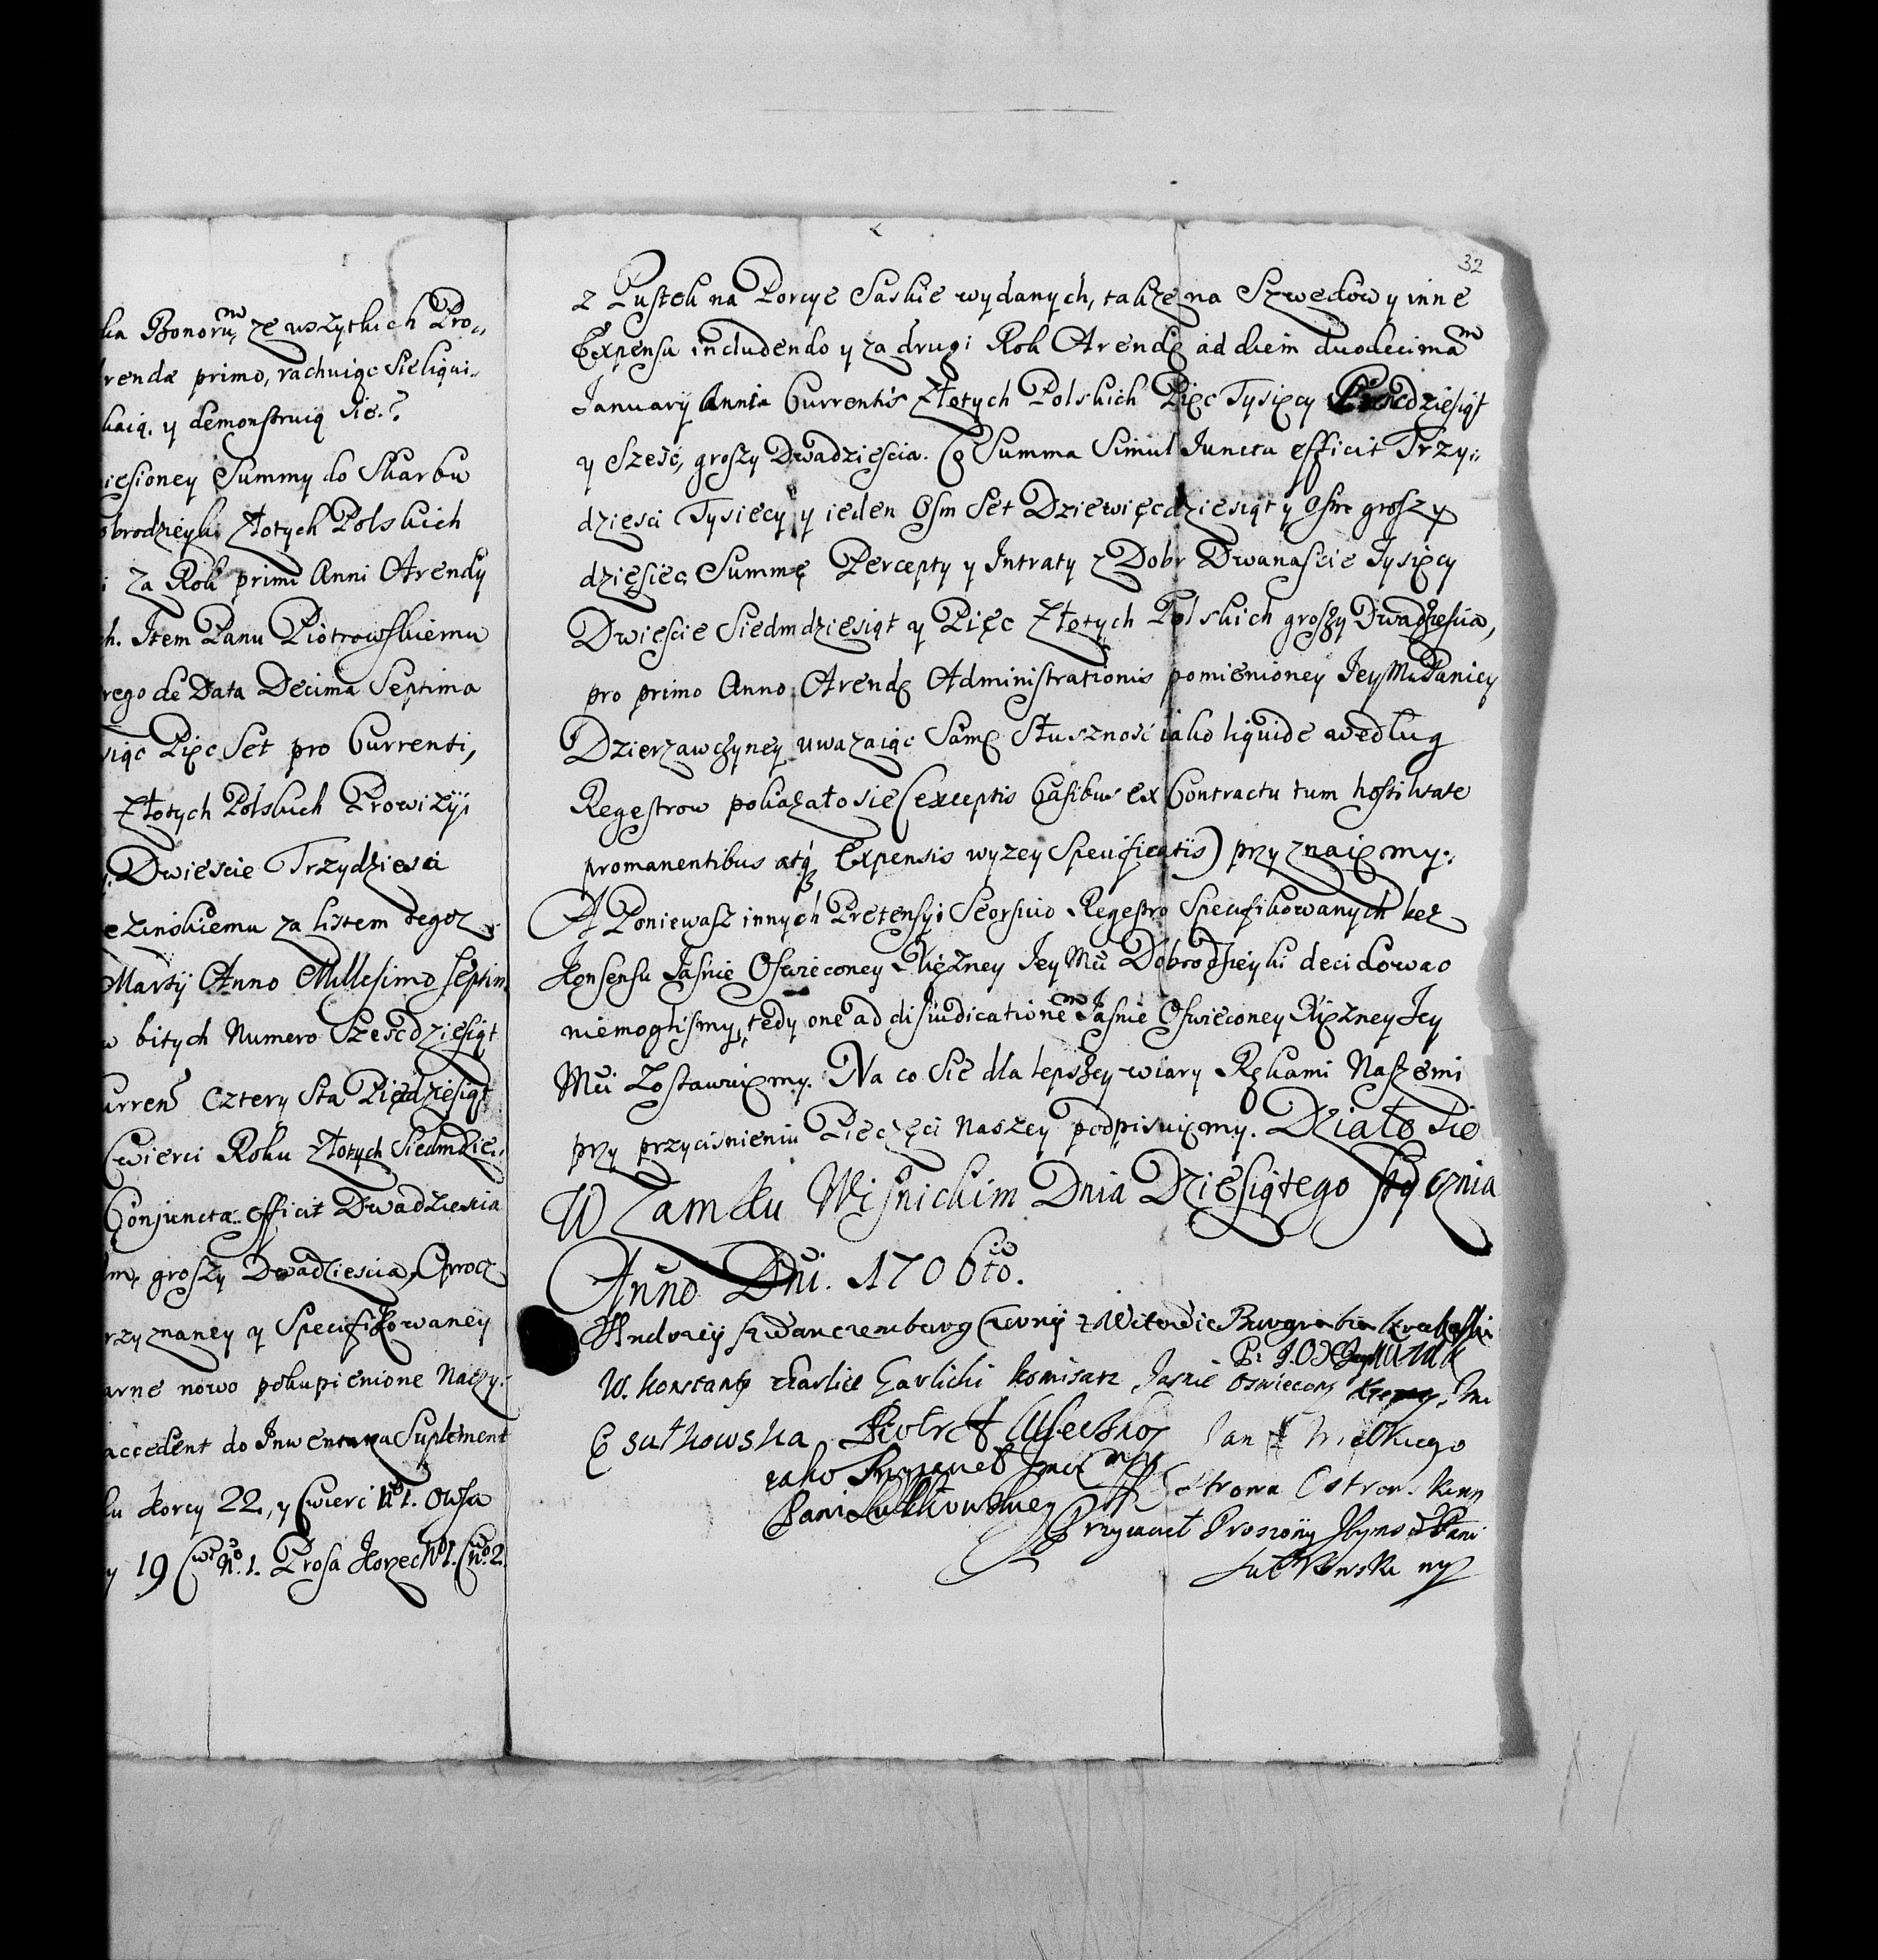 ka Bonorum, ze wszytkich Pro„
rendæ primo, rachuiąc sie liqui„
kaią. y demonstruią sie.
iesioney Summy do Skarbu
obrodzieyki Złotych Polskich
i za Rok primi Anni Arendy
ch. Item Panu Piotrowskiemu
rego de Data Decima Septima
siąc Pięc Set pro Currenti,
Złotych Polskich Prowizÿi
Dwiescie Trzydziesci
ezinskiemu za listem tegoz
Martÿ Anno Millesimo Septin
w bitych Numero Szescdziesiąt
urren Cztery Sta Pięcdziesiąt
Cwierci Roku Złotych Siedmdzie„
Conjuncta efficit Dwadziescia
groszy Dwadziescia, Oprocz
rzyznaney y Specifikowaney
arne nowo pokupienione Naczy„
accedent do Inwentarza Suplement
ku Korcy 22, y Cwierci No 1. Owsa
y 19 Cwi No. 1. Prosa Korzec No 1. Cw No 2.
32
z Pustek na Porcye Saskie wydanych, takze na Szwedow y inne
Expensa includendo y za drugi Rok Arendę ad diem duodecimam
Januarÿ Anni Currentis Złotych Polskich Pięc Tysięcy Pięcdziesiąt
y Szesć, groszy Dwadziescia. Co Summa Simul Juncta efficit Trzy„
dziesci Tysiecy y ieden Osm Set Dziewięcdziesiąt y Osm groszy
dziesiec Summę Percepty y Intraty z Dobr Dwanascie Tysięcy
Dwiescie Siedmdziesiąt y Pięc Złotych Polskich groszy Dwadziescia,
pro primo Anno Arendę Administrationis pomienioney Jey Mci Paniey
Dzierzawczyney uwazaiąc samę słusznosć iako liquide według
Regestrow pokazało sie (exceptis Casibus ex Contractu tum hostilitate
promanentibus atq Expensis wyzey Specificatis) przyznaięmy.
A Poniewasz innych Pretensyi Seorsivo Regestro Specifikowanych bez
Konsensu Jasnie Oswieconey Xiężney Jey Mci Dobrodzieyki decidowac
niemoglismy, tedy one ad disiudicationem Jasnie Oswieconey Xiężney Jey
Mci Zostawuięmy. Na co sie dla lepszey wiary Rękami Naszemi
przy przycisnieniu Pieczęci Naszey podpisuięmy. Działo sie
W Zamku Wisnickim Dnia Dziesiątego stycznia
Anno Dni. 1706to.
Andrzeÿ Szwarczemberg Czernÿ z Witowic Burgrabia krakoski
W. Konstanty z Garlice Garlicki komisarz Jasnie Oswieconÿ
Jan
Przyiaciel
Pani